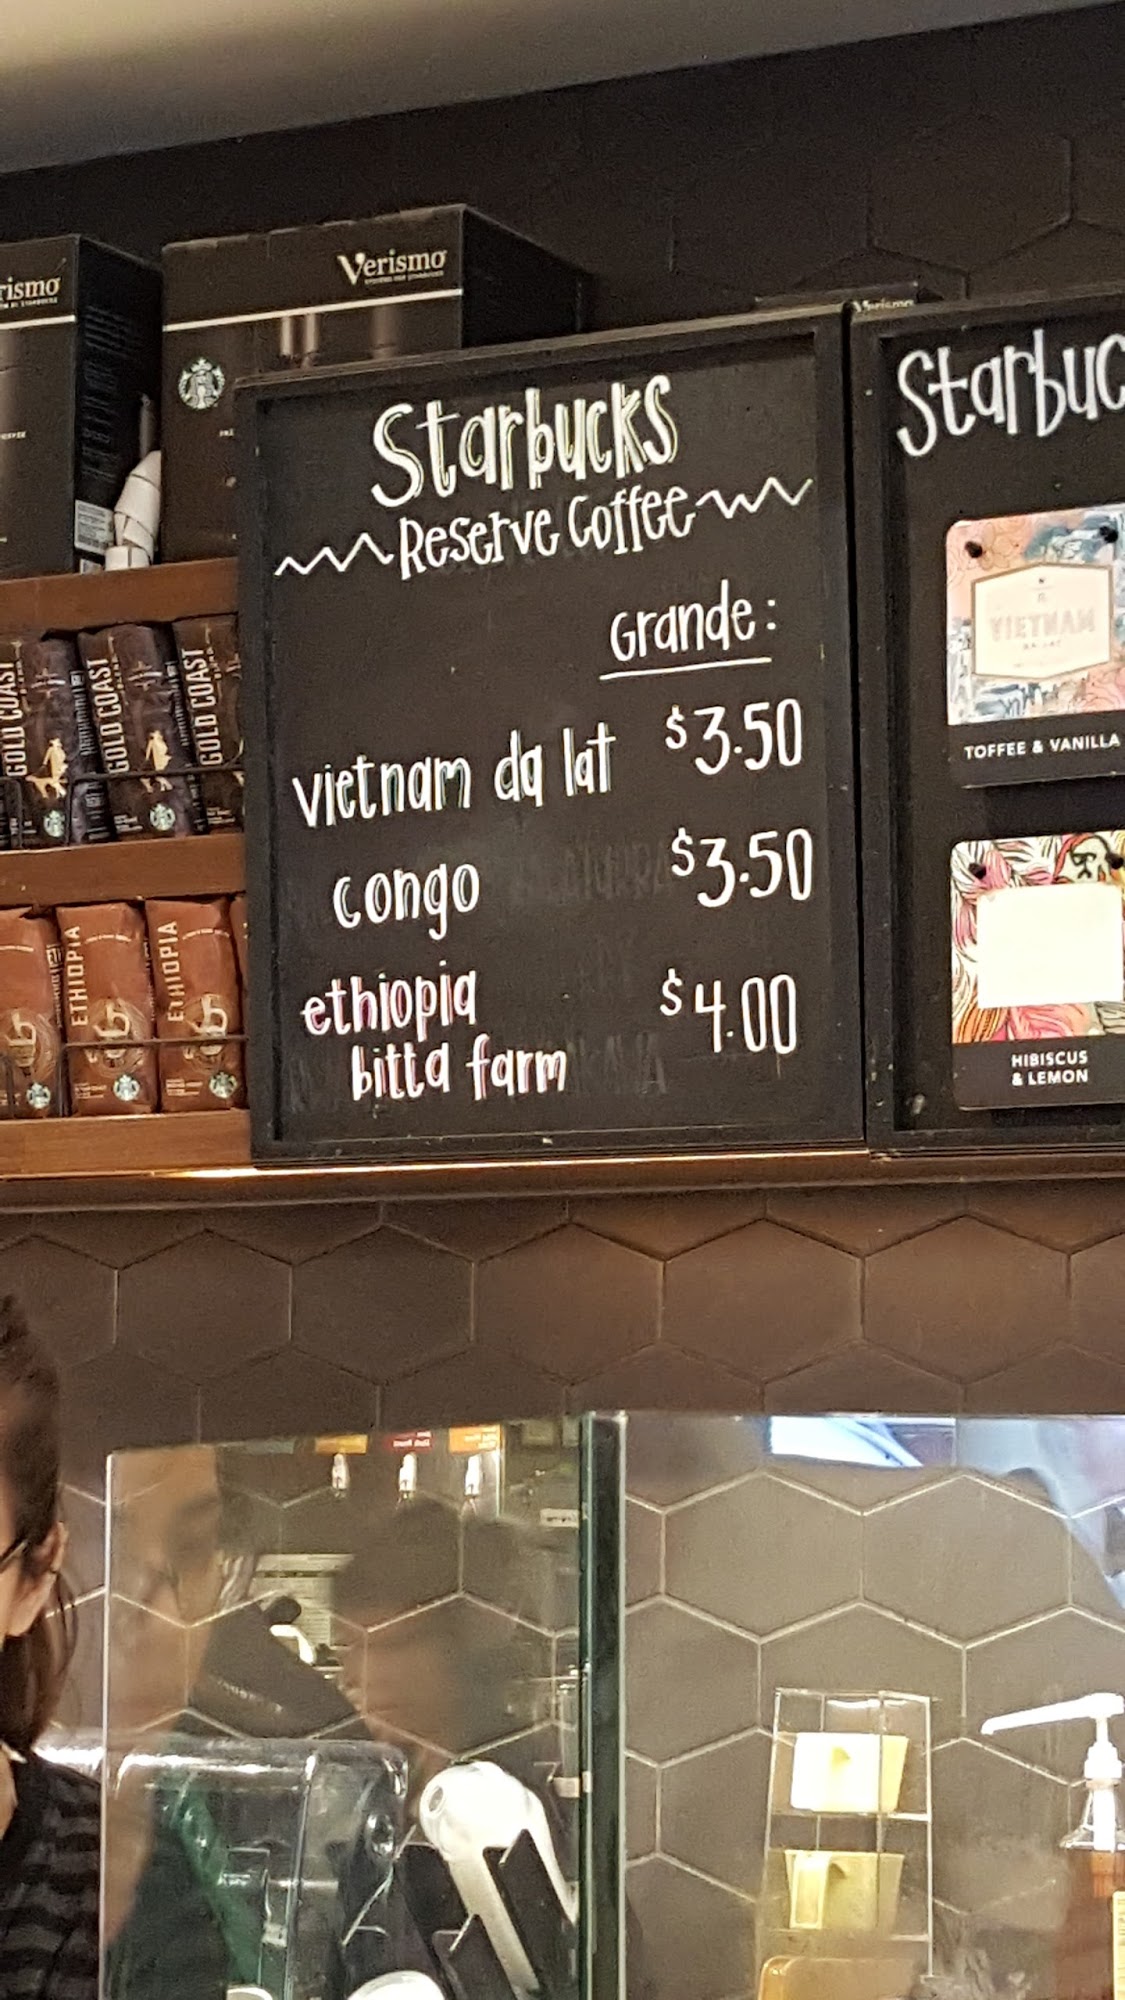 Verismo
rismo
Verismo
Starbucks
Reserve Coffee
Grande:
vietnam da lat $3.50
congo $3.50
ethiopia
bitta farm $4.00
Starbuc
VIETNAM
DA LAT
TOFFEE & VANILLA
HIBISCUS
& LEMON
GOLD COAST
GOLD COAST
GOLD COAST
ETHIOPIA
ETHIOPIA